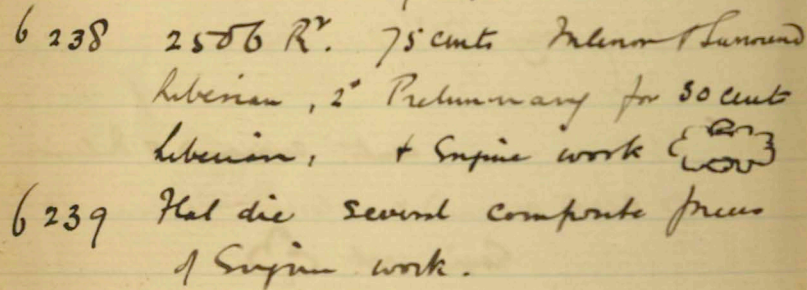 6238 2506 Rr. 75 cents Interior & Surround
Liberian, 2d Preliminary for 50 cents
Liberian, + Engine work
6239 Flat die several composite pieces
of Engine work.